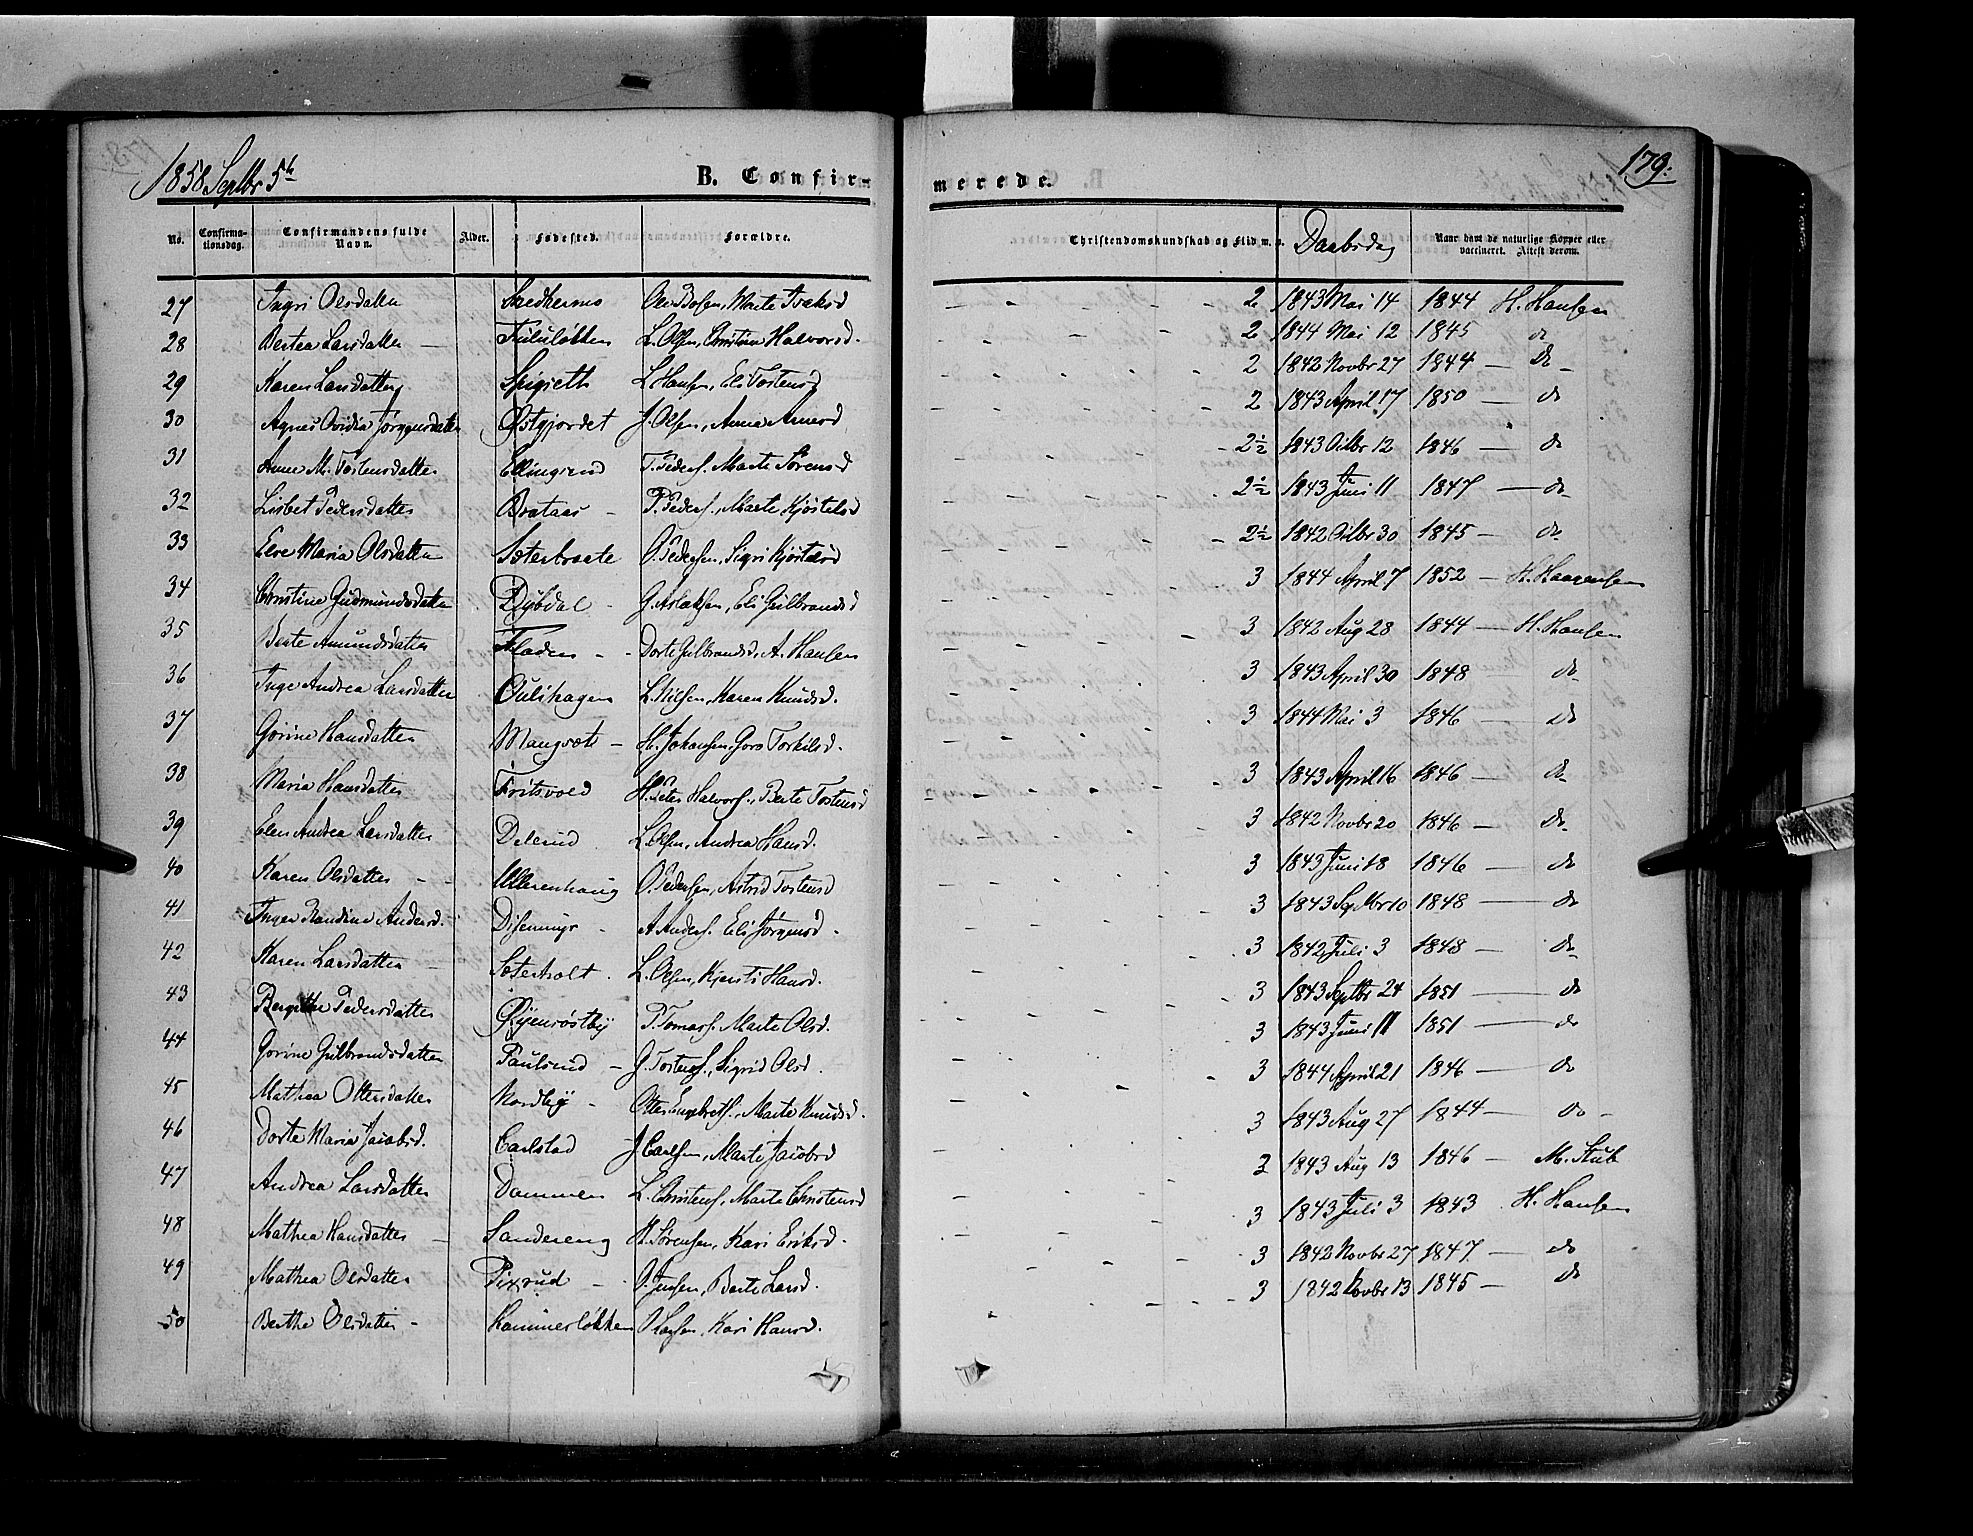 1858 Septbr 5te
B. Confir-
merede.
179:
No. Confirma-tionsdag. Confirmandens fulde Navn. Alder. Fødested. Forældre. Christendomskundskab og Flid m. m. Daabsdag Naar havt de naturlige Kopper eller vaccineret. Attest derom.
27 Ingri Olsdatter Olsen, Marte 2 1843 Mai 14 1844 H. Hansen
28 Bertea Larsdatter - L. Olsen, Christine Halvorsd. 2 1844 Mai 12 1845 do
29 Karen Larsdatter L. Hansen, Eli Tostensd 2 1842 Novbr 27 1844 - do -
30 Agnes Ovidia Jørgensdatter Østgjordet J. Olsen, Anna Arnesd 2 1843 April 17 1850 - do
31 Anne M. Tostensdatter Ellingsrud T. Peders. Marte Sørensd 2½ 1843 Octbr 12 1846 - do
32 Lisbet Pedersdatter Brataas - P. Peders., Marte Kjøstelsd 2½ 1843 Juni 11 1847 - do -
33 Else Maria Olsdatter Soterbraate O. Pedersen, Sigri Kjøstelsd 2½ 1842 Octbr 30 1845 - do
34 Christine Gudmundsdatter Dybdal - G. Aslaksen, Eli Gulbrandsd 3 1844 April 7 1852 - H. Haagensen
35 Berte Amundsdatter Fladen - - Dorte Gulbrandsd, A. Hansen 3 1842 Aug 28 1844 - H. Hansen
36 Inge Andrea Larsdatter L. Nilsen, Karen Knudsd. 3 1843 April 30 1848 do
37 Gorine Hansdatter - H. Johansen, Goro Torkilsd. 3 1844 Mai 3 1846 - do
38 Maria Hansdatter Fritsvold H. Peter Halvors., Berte Tostensd 3 1843 April 16 1846 - do -
39 Elen Andrea Larsdatter Delerud L. Olsen, Andrea Hansd. 3 1842 Novbr 20 1846 - do -
40 Karen Olsdatter - - Ullerenhaug O. Pedersen, Astrid Tostensd 3 1843 Juni 18 1846 - do
41 Inger Randine Andersd. - A. Anders. Eli Jørgensd - 3 1843 Septbr 10 1848 - do
42 Karen Larsdatter - Soterholt. L. Olsen, Kjersti Hansd. 3 1842 Juli 3 1848 - do
43 Bergitte Pedersdatter Øyenrøstby P. Tomass. Marte Olsd. 3 1843 Septbr 24 1851 - do
44 Gorine Gulbrandsdatter Paulsrud - G. Tostens., Sigrid Olsd. 3 1843 Juni 11 1851 - do
45 Mathea Ottersdatter Nordby - Otter Engebrets., Marte Knudsd. 3 1844 April 21 1846 - do
46 Dorte Maria Jacobsd. Carlstad J. Carlsen, Marte Jacobsd 3 1843 Aug 27 1844 - do -
47 Andrea Larsdatter Dammen L. Christens., Marte Christensd 3 1843 Aug 13 1846 - M. Stub
48 Mathea Hansdatter - Sandereng H. Sørensen, Kari Eriksd. 3 1843 Juli 3 1843 H. Hansen
49 Mathea Olsdatter Pixrud - O. Jensen, Berte Larsd. 3 1842 Novbr 27 1847 - do
50 Berthe Olsdatter - Kammerløkken O. Larsen, Kari Hansd. 3 1842 Novbr 13 1845 - do